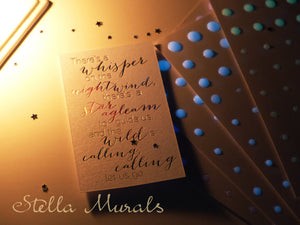 There's a
whisper
on the
nightwind,
there's a
star
agleam
to guide us
and the
wild is
calling
calling
let us go
Stella Murals